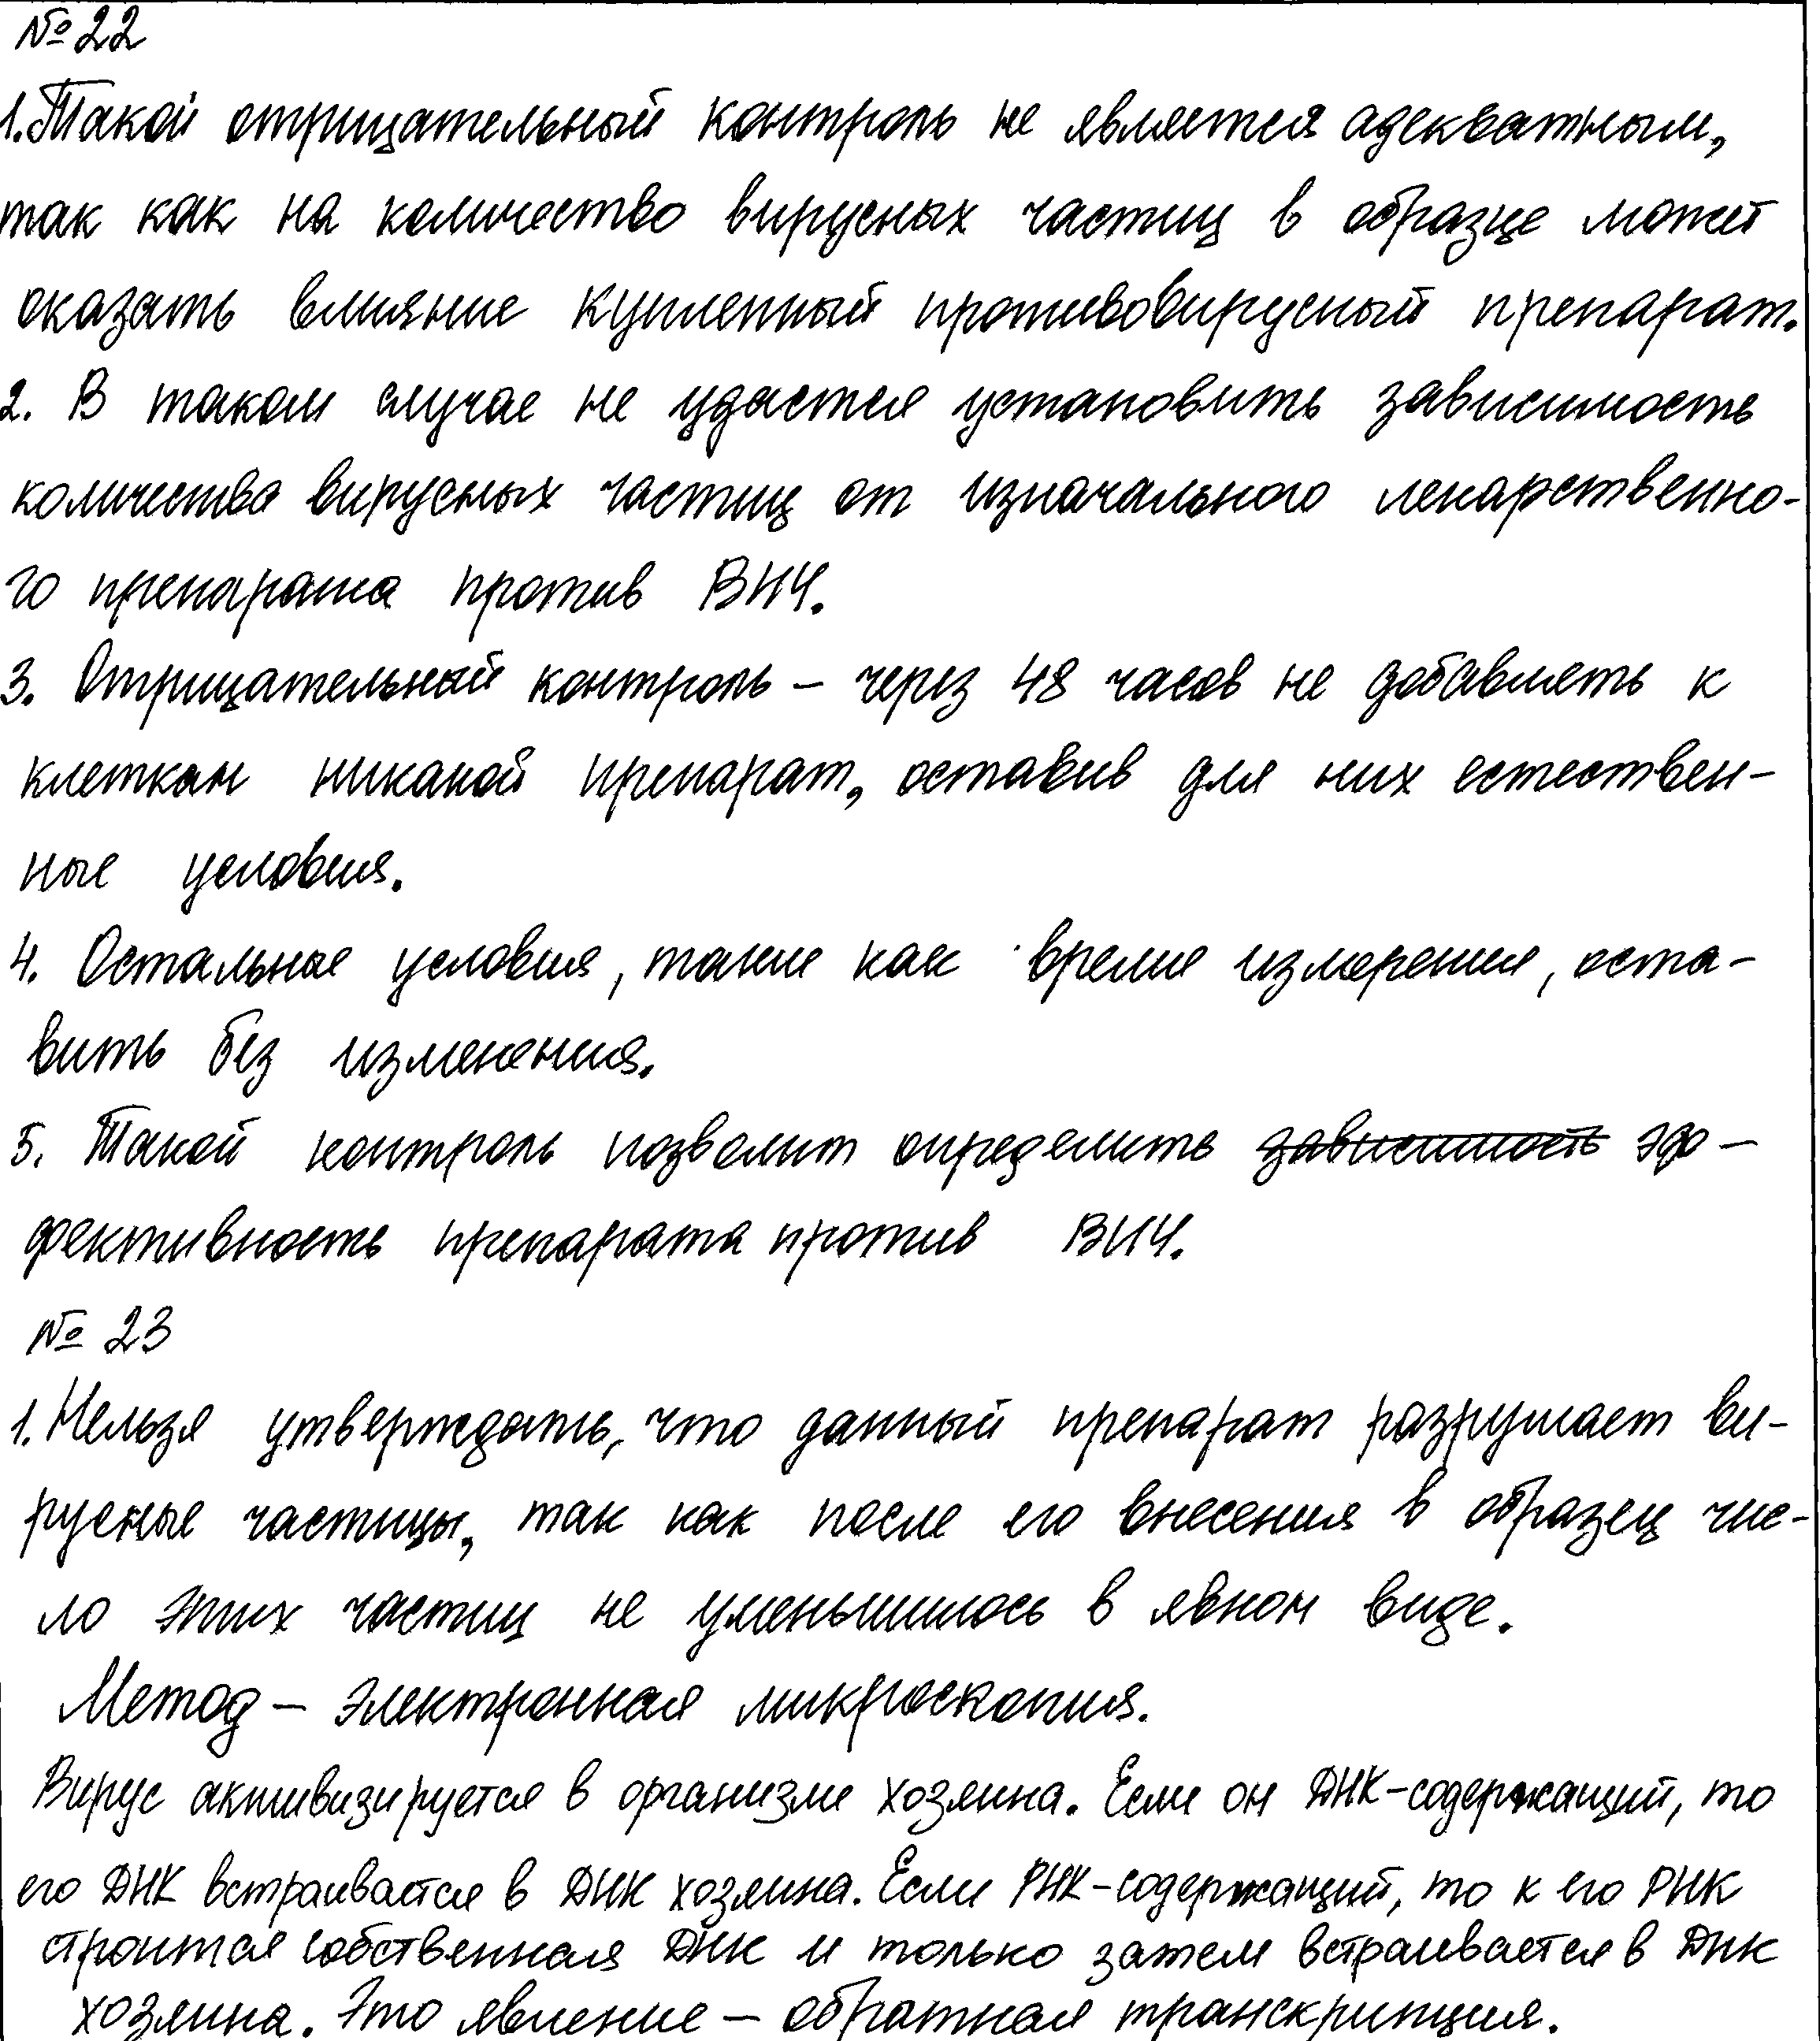 № 22
1. Такой отрицательный контроль не является адекватным,
так как на количество вирусных частиц в образце может
оказать влияние купленный противовирусный препарат.
2. В таком случае не удастся установить зависимость
количества вирусных частиц от изначального лекарственно-
го препарата против ВИЧ.
3. Отрицательный контроль – через 48 часов не добавлять к
клеткам никакой препарат, оставив для них естествен-
ные условия.
4. Остальные условия, такие как время измерения, оста-
вить без изменения.
5. Такой контроль позволит определить зависимость эф-
фективность препарата против ВИЧ.
№ 23
1. Нельзя утверждать, что данный препарат разрушает ви-
русные частицы, так как после его внесения в образец чис-
ло этих частиц не уменьшилось в явном виде.
Метод – электронная микроскопия.
Вирус активизируется в организме хозяина. Если он ДНК-содержащий, то
его ДНК встраивается в ДНК хозяина. Если РНК-содержащий, то к его РНК
строится собственная ДНК и только затем встраивается в ДНК
хозяина. Это явление – обратная транскрипция.